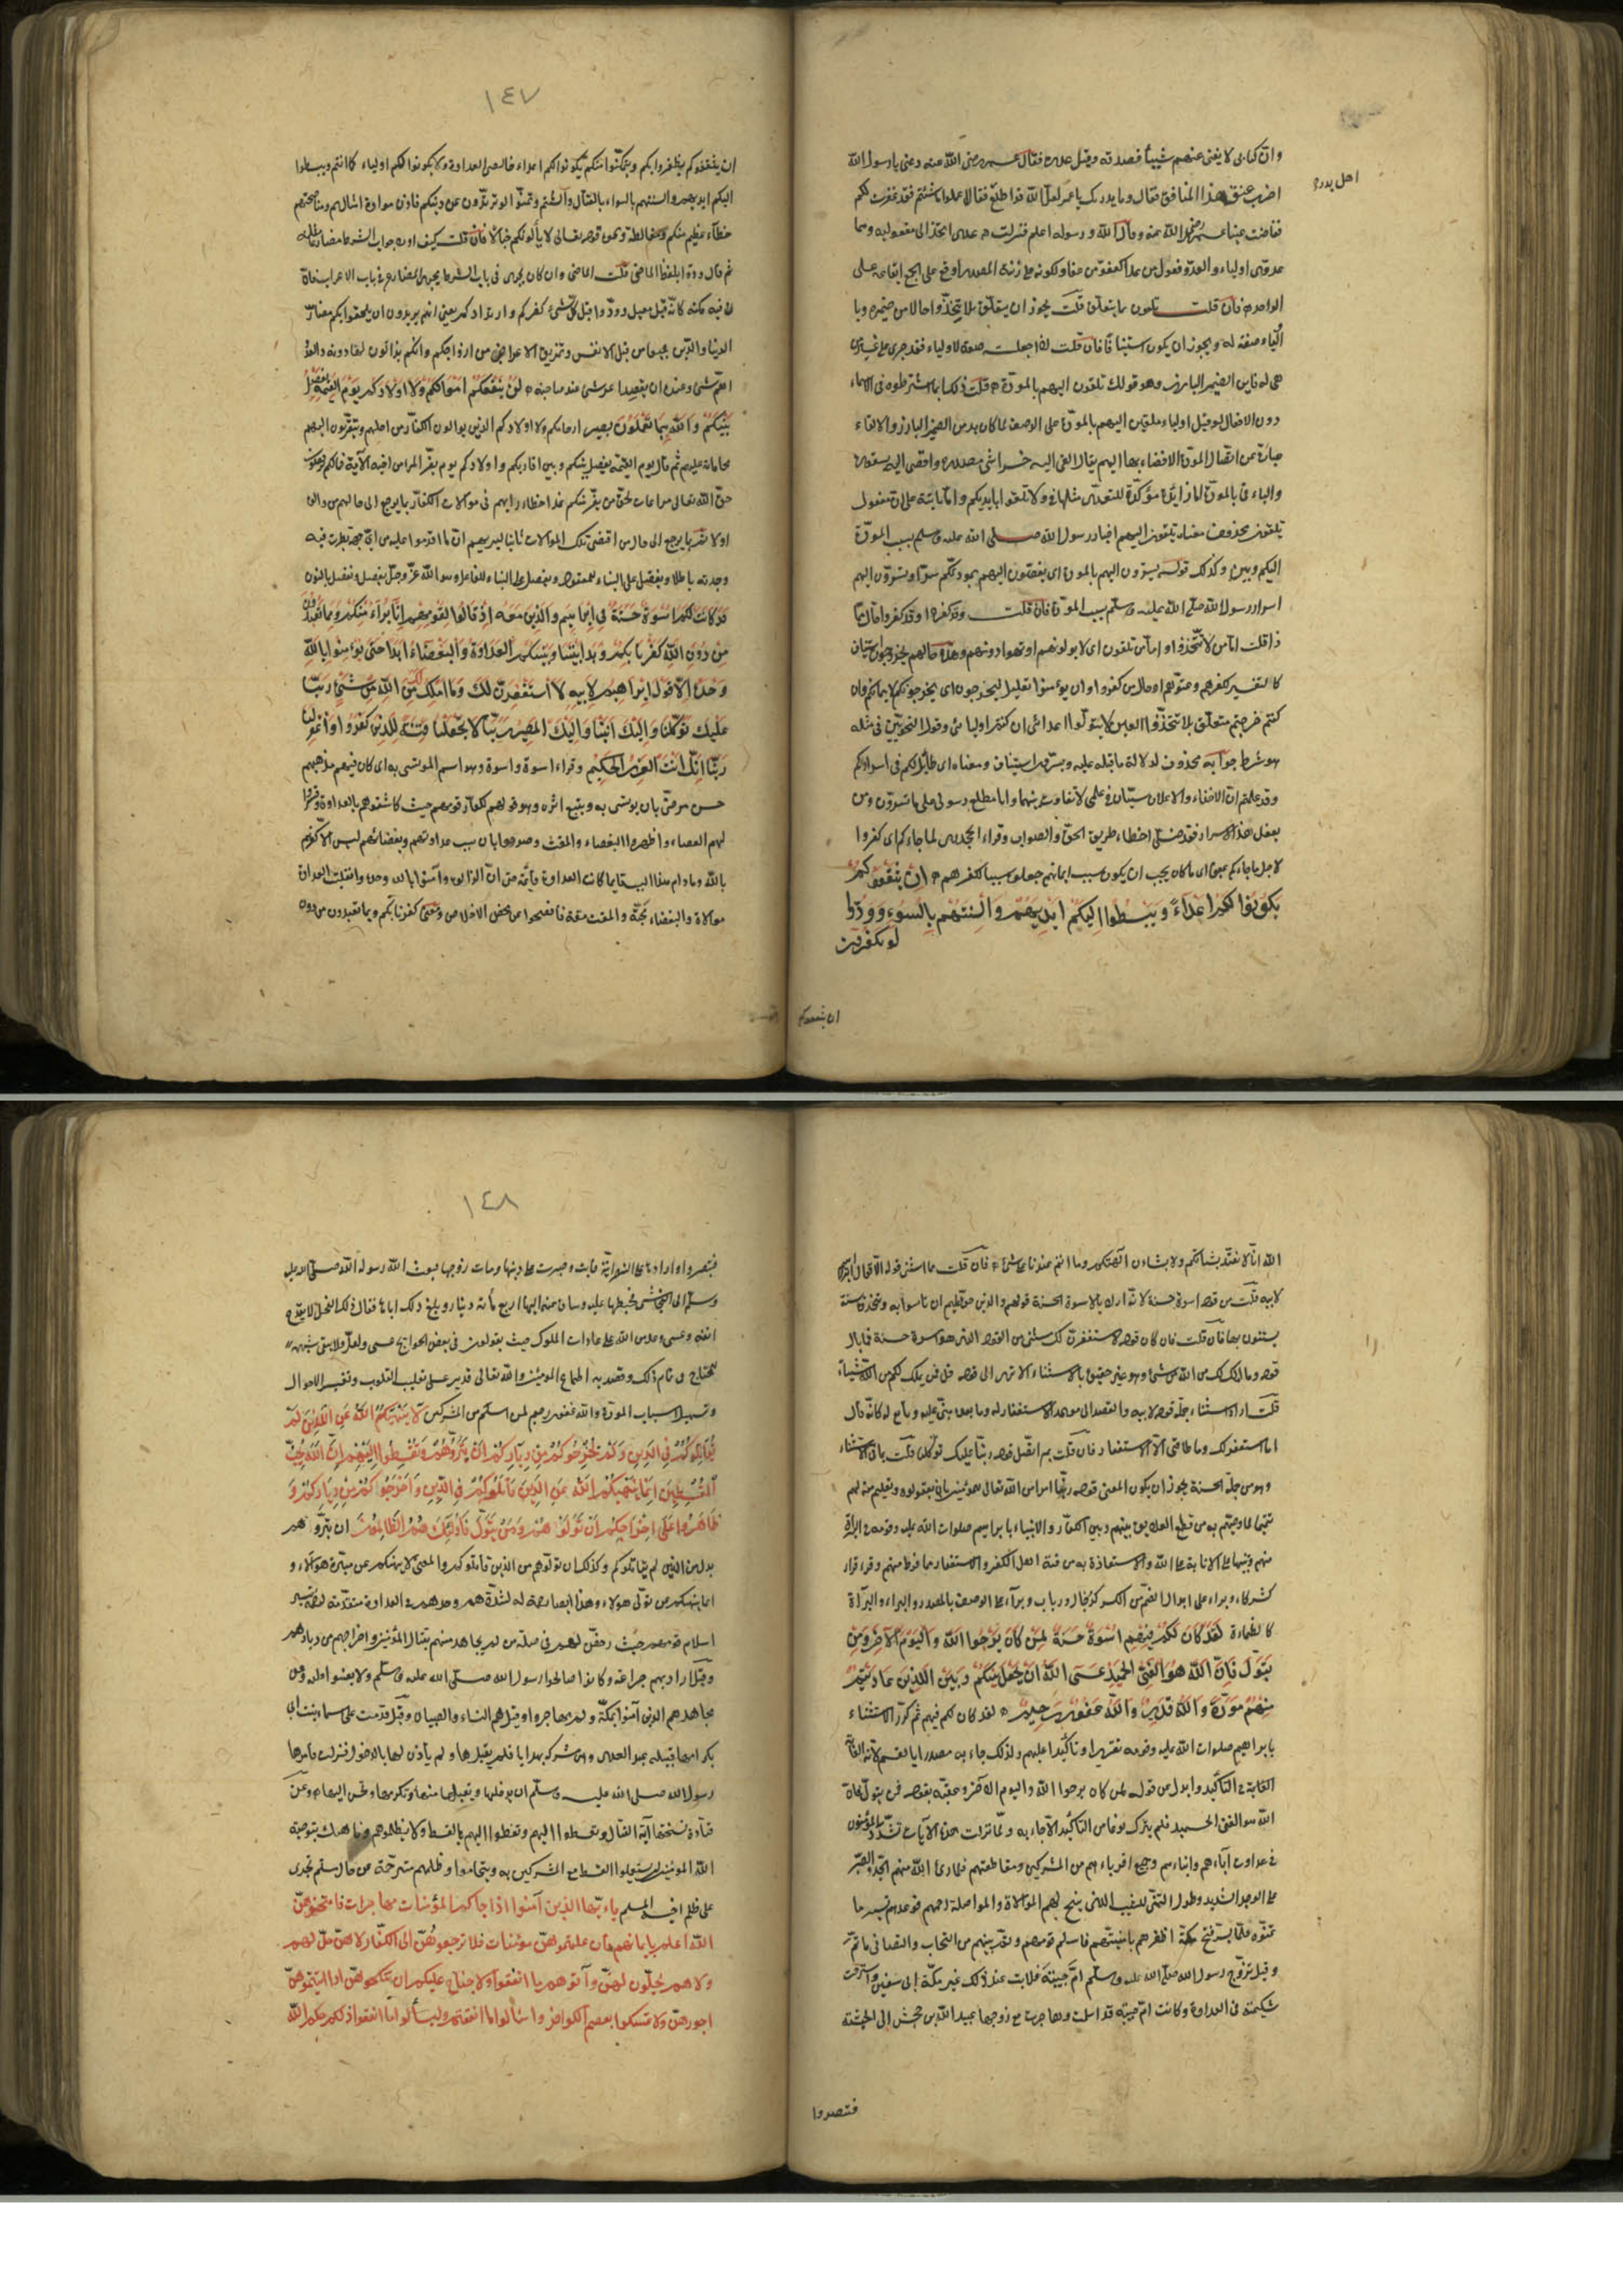 وان كتابى لا يغنى عنهم شيئا فصدقه وقبل عذره فقال عمر رضى الله عنه دعنى يا رسول الله
اهل بدر
اضرب عنق هذا المنافق فقال وما يدريك يا عمر لعل الله قد اطلع فقال اعملوا ما شئتم فقد غفرت لكم
ففاضت عينا عمر رضى الله عنه وقال الله ورسوله اعلم فنزلت عدى اتخذ الى مفعوليه وهما
عدوى اولياء والعدو فعول من عدا كعفو من عفا ولكونه على زنة المصدر اوقع على الجمع ايقاعه على
الواحد فان قلت تلقون بم يتعلق قلت يجوز ان يتعلق بلا تتخذوا حالا من ضميره وبا
ولياء صفة له ويجوز ان يكون استينافا فان قلت اذا جعلته صفة لاولياء فقد جرى على غير من
هى له فاين الضمير البارز وهو قولك تلقون اليهم بالمودة قلت ذلك انما اشترطوه فى الاسماء
دون الافعال لو قيل اولياء ملقين اليهم بالمودة على الوصف لما كان بد من الضمير البارز والالقاء
عبارة عن ايصال المودة والافضاء بها اليهم يقال القى اليه خراشى صدره وافضى اليه بقشوره
والباء فى بالمودة اما زايدة مؤكدة للتعدى مثلها فى ولا تلقوا بايديكم واما ثابتة على ان مفعول
تلقون محذوف معناه تلقون اليهم اخبار رسول الله صلى الله عليه وسلم بسبب المودة
التى بينكم وبينهم وكذلك قوله تسرون اليهم بالمودة اى تفضون اليهم بمودتكم سرا وتسرون اليهم
اسرار رسول الله صلى الله عليه وسلم بسبب المودة فان قلت وقد كفروا حال مما
ذا قلت اما من لا تتخذوا واما من تلقون اى لا تولونهم او توادونهم وهذه حالهم يخرجون استيناف
كالتفسير لكفرهم وعتوهم او حال من كفروا وان تؤمنوا تعليل ليخرجون اى يخرجونكم لايمانكم وان
كنتم خرجتم متعلق بلا تتخذوا يعنى لا تتولوا اعدائى ان كنتم اوليائى وقول النحويين فى مثله
هو شرط جوابه محذوف لدلالة ما قبله عليه وتسرون استيناف ومعناه اى طائل لكم فى اسراركم
وقد علمتم ان الاخفاء والاعلان سيان فى علمى لا تفاوت بينهما وانا مطلع رسولى على ما تسرون ومن
يفعل هذا الاسرار فقد ضل اخطاء طريق الحق والصواب وقراء الجحدرى لما جاءكم اى كفروا
لاجل ما جاءكم بمعنى ان ما كان يجب ان يكون سبب ايمانهم جعلوه سببا لكفرهم ان يثقفوكم
يكونوا لكم اعداءً ويبسطوا اليكم ايديهم والسنتهم بالسوء وودوا
لو تكفرون
ان يثقفوكم
١٤٧
ان يثقفوكم يظفروا بكم ويتمكنوا منكم يكونوا لكم اعداء خالصى العداوة ولا يكونوا لكم اولياء كما انتم ويبسطوا
اليكم ايديهم والسنتهم بالسوء بالقتال والشتم وتمنوا لو ترتدون عن دينكم فاذن موادة امثالهم ومناصحتهم
خطاء عظيم منكم ومغالطة ونحوه قوله تعالى لا يألونكم خبالا فان قلت كيف اورد جواب الشرط مضارعا مثله
ثم قال وودوا بلفظ الماضى قلت الماضى وان كان يجرى فى باب الشرط مجرى المضارع فى باب الاعراب فان
ن فيه نكتة كانه قيل وودوا قبل كل شئ كفركم وارتدادكم يعنى انهم يريدون ان يلحقوا بكم مضار
الدنيا والدين جميعا من قتل الانفس وتمزيق الاعراض من ارواحكم وانكم بذالون لها دونه والعدو
اهم شئ عنده ان يقصد اعز شئ عند صاحبه لن تنفعكم ارحامكم ولا اولادكم يوم القيمة يفصل
بينكم والله بما تعملون بصير ارحامكم ولا اولادكم الذين يوالون الكفار من اجلهم وتتقربون اليهم
محاماة عليهم ثم قال يوم القيمة يفصل بينكم وبين اقاربكم واولادكم يوم يفر المرء من اخيه الآية فما لكم ترفضون
حق الله تعالى مراعاة لحق من يفر منكم غدا خطاء رايهم فى موالات الكفار بما يرجع الى حالهم من والى
اولا ثم بما يرجع الى حال من اقتضى تلك الموالات ثانيا ليريهم ان ما اقدموا عليه من اى جهة نظرت فيه
وجدته باطلا ويفصل على البناء للمفعول ويفصل على البناء للفاعل وهو الله عز وجل ونفصل بالنون
قد كانت لكم اسوة حسنة فى ابراهيم والذين معه اذ قالوا لقومهم انا برآء منكم ومما تعبدون
من دون الله كفرنا بكم وبدا بيننا وبينكم العداوة والبغضاء ابدا حتى تؤمنوا بالله
وحده الا قول ابراهيم لابيه لاستغفرن لك وما املك لك من الله من شئ ربنا
عليك توكلنا واليك انبنا واليك المصير ربنا لا تجعلنا فتنة للذين كفروا واغفر لنا
ربنا انك انت العزيز الحكيم وقراء اسوة واسوة وهو اسم المؤتسى به اى كان فيهم مذهبهم
حسن مرضى بان يؤتسى به ويتبع اثره وهو قولهم لكفار قومهم حيث كاشفوهم بالعداوة وقشروا
لهم العصاء واظهروا البغضاء والمقت وصرحوا بان سبب عداوتهم وبغضائهم ليس الا كفرهم
بالله وما دام هذا السبب قايما كانت العداوة قايمة حتى ان ازالوه وآمنوا بالله وحده وانقلبت العداوة
موالاة والبغضاء محبة والمقت مقة فافصحوا عن محض الاخلاص ومعنى كفرنا بكم وبما تعبدون من دون
الله انا لا نعتد بشانكم ولا بشان آلهتكم وما انتم عندنا على شئ فان قلت مما استثنى قوله الا قول ابراهيم
لابيه قلت من قوله اسوة حسنة لانه اراد بالاسوة الحسنة قولهم الذى حق عليهم ان ياتسوا به ويتخذونه سنة
يستنون بها فان قلت فان كان قوله لاستغفرن لك مستثنى من القول الذى هو اسوة حسنة فما بال
قوله وما املك لك من الله من شئ وهو غير حقيق بالاستثناء الا ترى الى قوله قل فمن يملك لكم من الله شيئا
قلت اراد استثناء جملة قوله لابيه والقصد الى موعد الاستغفار له وما بعده مبنى عليه وتابع له كانه قال
انا استغفر لك وما طاقتى الا الاستغفار فان قلت بم اتصل قوله ربنا عليك توكلنا قلت بما قبل الاستثناء
وهو من جملة الاسوة الحسنة يجوز ان يكون المعنى قولوا ربنا امر من الله تعالى للمؤمنين بان يقولوه وتعليم منه لهم
تتميما لما وصيهم به من قطع العلايق بينهم وبين الكفار والائتساء بابراهيم صلوات الله عليه وقومه فى البراءة
منهم وتنبيها على الانابة الى الله والاستعاذة به من فتنة اهل الكفر والاستغفار مما فرط منهم وقرء برآء
كشركاء وبراء على ابدال الضم من الكسر كرخال ورباب وبرآء على الوصف بالمصدر والبراء والبراءة
كالظماءة لقد كان لكم فيهم اسوة حسنة لمن كان يرجوا الله واليوم الآخر ومن
يتول فان الله هو الغنى الحميد عسى الله ان يجعل بينكم وبين الذين عاديتم
منهم مودة والله قدير والله غفور رحيم لقد كان لكم فيهم ثم كرر الاستثناء
بابراهيم صلوات الله عليه وقومه تقريرا وتأكيدا عليهم ولذلك جاء به مصدرا بالقسم لانه الغاية
الغاية فى التأكيد وابدل من قوله لكم لمن كان يرجوا الله واليوم الآخر وعقبه بقوله ومن يتول فان
الله هو الغنى الحميد فلم يترك نوعا من التأكيد الا جاء به ولما نزلت هذه الآيات تشدد المؤمنون
فى عداوة آباءهم وابناءهم وجميع اقرباءهم من المشركين ومقاطعتهم فلما راى الله منهم الجد والصبر
على الوجه الشديد وطول التمنى للسبب الذى يبيح لهم الموالاة والمواصلة رحمهم فوعدهم تيسير ما
تمنوه فلما يسر فتح مكة اظفرهم بامنيتهم فاسلم قومهم وتم بينهم من التحاب والتصافى ما تم
وقيل تزوج رسول الله صلى الله عليه وسلم ام حبيبة فلانت عند ذلك عريكة ابى سفين واسترخت
شكيمته فى العداوة وكانت ام حبيبة قد اسلمت وهاجرت مع زوجها عبيد الله بن جحش الى الحبشة
فتنصروا
١٤٨
فتنصر وارادها على النصرانية فابت وصبرت على دينها ومات زوجها فبعث الله رسوله الله صلى الله عليه
وسلم الى النجاشى فخطبها عليه وساق عنه اليها اربع مأة دينار وبلغ ذلك اباها فقال ذلك الفحل لا يقدع
انفه وعسى وعد من الله على عادات الملوك حيث يقولون فى بعض الحوايج عسى ولعل فلا تبقى شبهة
للمحتاج فى تمام ذلك وقصد به اطماع المؤمنين والله تعالى قدير على تقليب القلوب وتغيير الاحوال
وتسهيل اسباب المودة والله غفور رحيم لمن اسلم من المشركين لا ينهيكم الله عن الذين لم
يقاتلوكم فى الدين ولم يخرجوكم من دياركم ان تبروهم وتقسطوا اليهم ان الله يحب
المقسطين انما ينهيكم الله عن الذين قاتلوكم فى الدين واخرجوكم من دياركم و
ظاهروا على اخراجكم ان تولوهم ومن يتول فأولئك هم الظالمون ان تبروهم
بدل من الذين لم يقاتلوكم وكذلك ان تولوهم من الذين قاتلوكم والمعنى لا ينهيكم عن مبرة هؤلاء و
انما ينهيكم عن تولى هولاء وهذا ايضا رحمة لهم لتشددهم وجدهم فى العداوة متقدمة لرحمته بتيسير
اسلام قومهم حيث رخص لهم فى صلة من لم يجاهد منهم بقتال المؤمنين واخراجهم من ديارهم
وقيل اراد بهم خزاعة وكانوا صالحوا رسول الله صلى الله عليه وسلم ولا يعينوا عليه وعن
مجاهد هم الذين آمنوا بمكة ولم يهاجروا وقيل هم النساء والصبيان وقيل قدمت على اسماء بنت ابى
بكر امها قتيلة بنت عبد العزى وهى مشركة بهدايا فلم يقبلها ولم يأذن لها بالدخول فنزلت فأمرها
رسول الله صلى الله عليه وسلم ان يدخلها وتقبل منها وتكرمها وتحسن اليها وعن
قتادة نسختها آية القتال وتقسطوا اليهم وتقضوا اليهم بالقسط ولا يظلموهم وناهيك بتوصية
الله المؤمنين ان يستعملوا القسط مع المشركين به ويتحاموا وظلمهم مترجمة عن حال مسلم يجترى
على ظلم اخيه المسلم ياءيها الذين آمنوا اذا جاءكم المؤمنات مهاجرات فامتحنوهن
الله اعلم بايمانهن فان علمتموهن مؤمنات فلا ترجعوهن الى الكفار لا هن حل لهم
ولا هم يحلون لهن وآتوهم ما انفقوا ولا جناح عليكم ان تنكحوهن اذا آتيتموهن
اجورهن ولا تمسكوا بعصم الكوافر واسئلوا ما انفقتم وليسألوا ما انفقوا ذلكم حكم الله